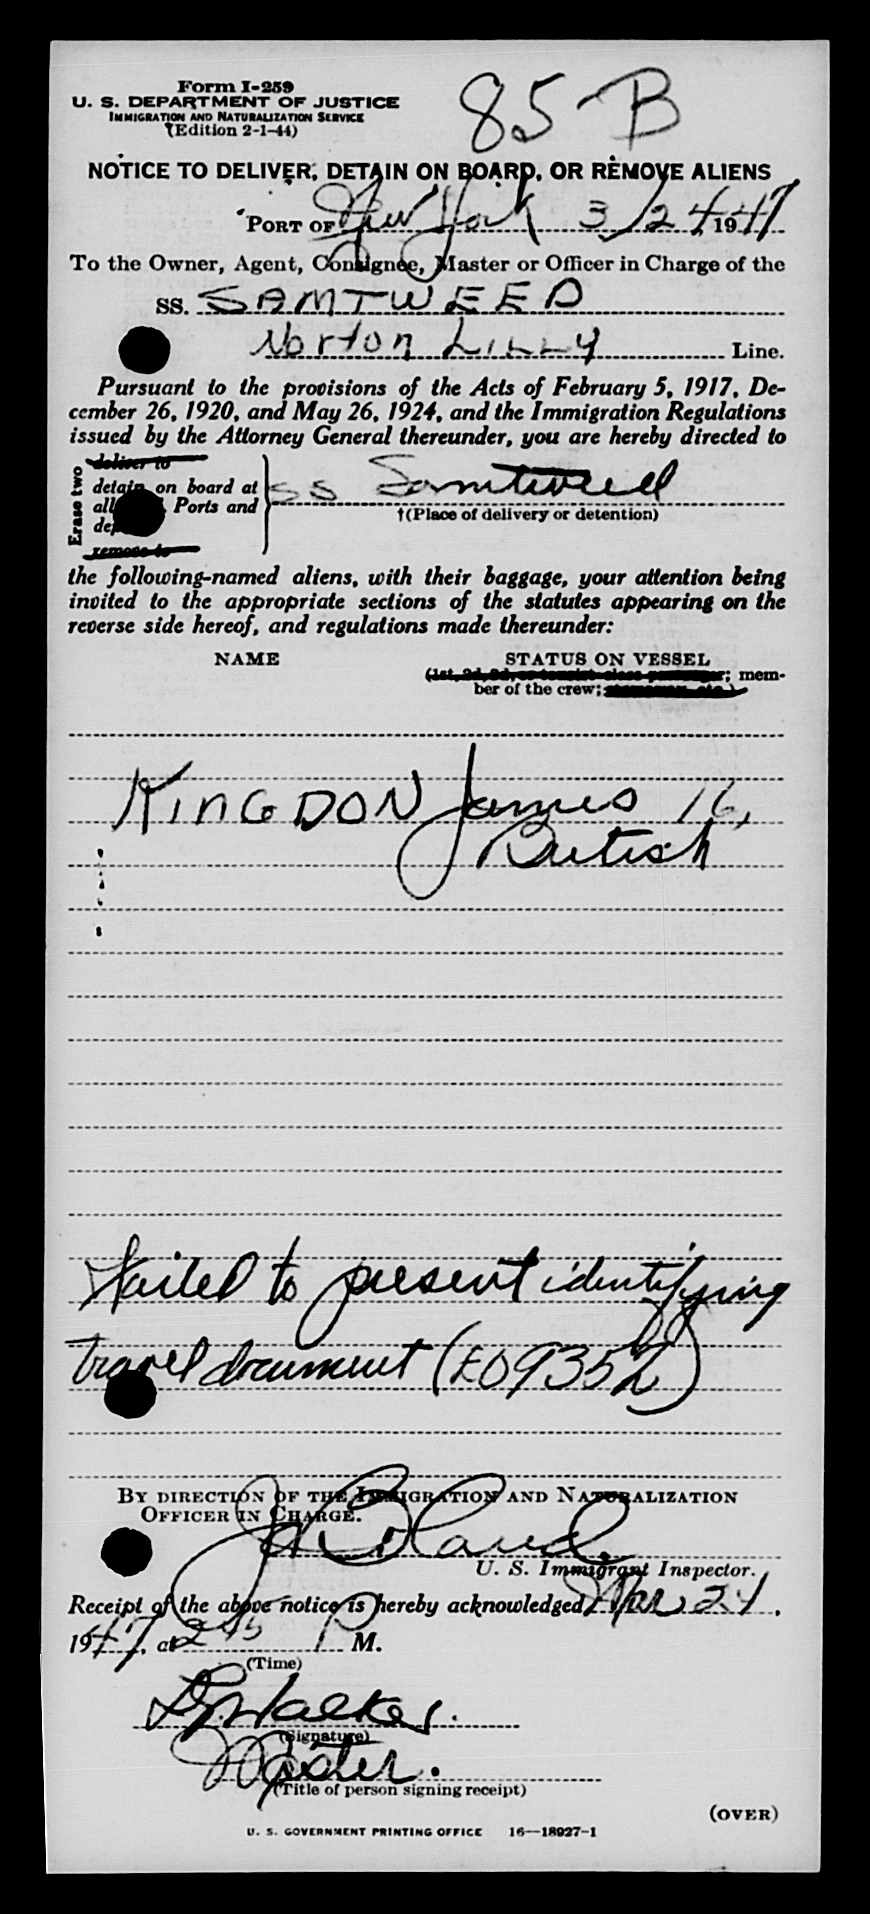 Form I-259
85-B
U. S. DEPARTMENT OF JUSTICE
IMMIGRATION AND NATURALIZATION SERVICE
(Edition 2-1-44)
NOTICE TO DELIVER, DETAIN ON BOARD, OR REMOVE ALIENS
PORT OF New York 3/24, 1947
To the Owner, Agent, Consignee, Master or Officer in Charge of the
SS. SAMTWEED
Norton LILLY Line.
Pursuant to the provisions of the Acts of February 5, 1917, De-
cember 26, 1920, and May 26, 1924, and the Immigration Regulations
issued by the Attorney General thereunder, you are hereby directed to
Erase two
deliver to
detain on board at
all Ports and
SS Samtweed
†(Place of delivery or detention)
remove to
the following-named aliens, with their baggage, your attention being
invited to the appropriate sections of the statutes appearing on the
reverse side hereof, and regulations made thereunder:
NAME STATUS ON VESSEL
(1st, 2d, 3d, or tourist class passenger; mem-
ber of the crew; stowaway, etc.)
KINGDON James 16,
British
Failed to present identifying
travel document (EO9352)
BY DIRECTION OF THE IMMIGRATION AND NATURALIZATION
OFFICER IN CHARGE.
U. S. Immigrant Inspector.
Receipt of the above notice is hereby acknowledged Mar 24,
1947, at 245 P M.
(Time)
Walker.
(Signature)
Master.
(Title of person signing receipt)
(OVER)
U. S. GOVERNMENT PRINTING OFFICE 16—18927-1